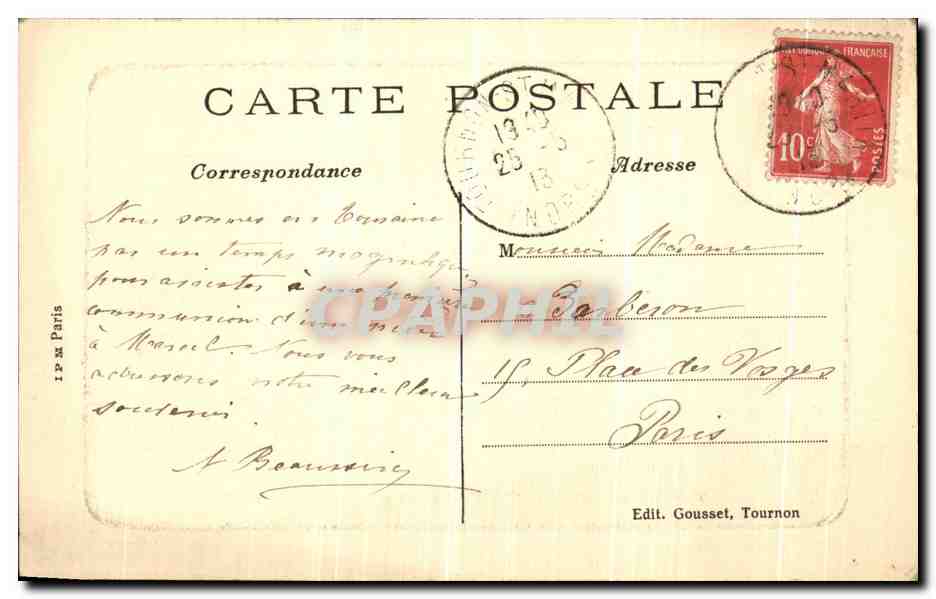 CARTE POSTALE
Correspondance
Adresse
REPUBLIQUE FRANÇAISE
10 c
POSTES
TOURNON-ST-M
25 -5
13
INDRE
Nous sommes en Touraine
par un temps magnifique
pour assister à une première
communion d'un
à Marcel. Nous vous
adressons notre meilleur
souvenir
Monsieur Madame
Barberon
15, Place des Vosges
Paris
Edit. Gousset, Tournon
I P M Paris
CPAPHIL